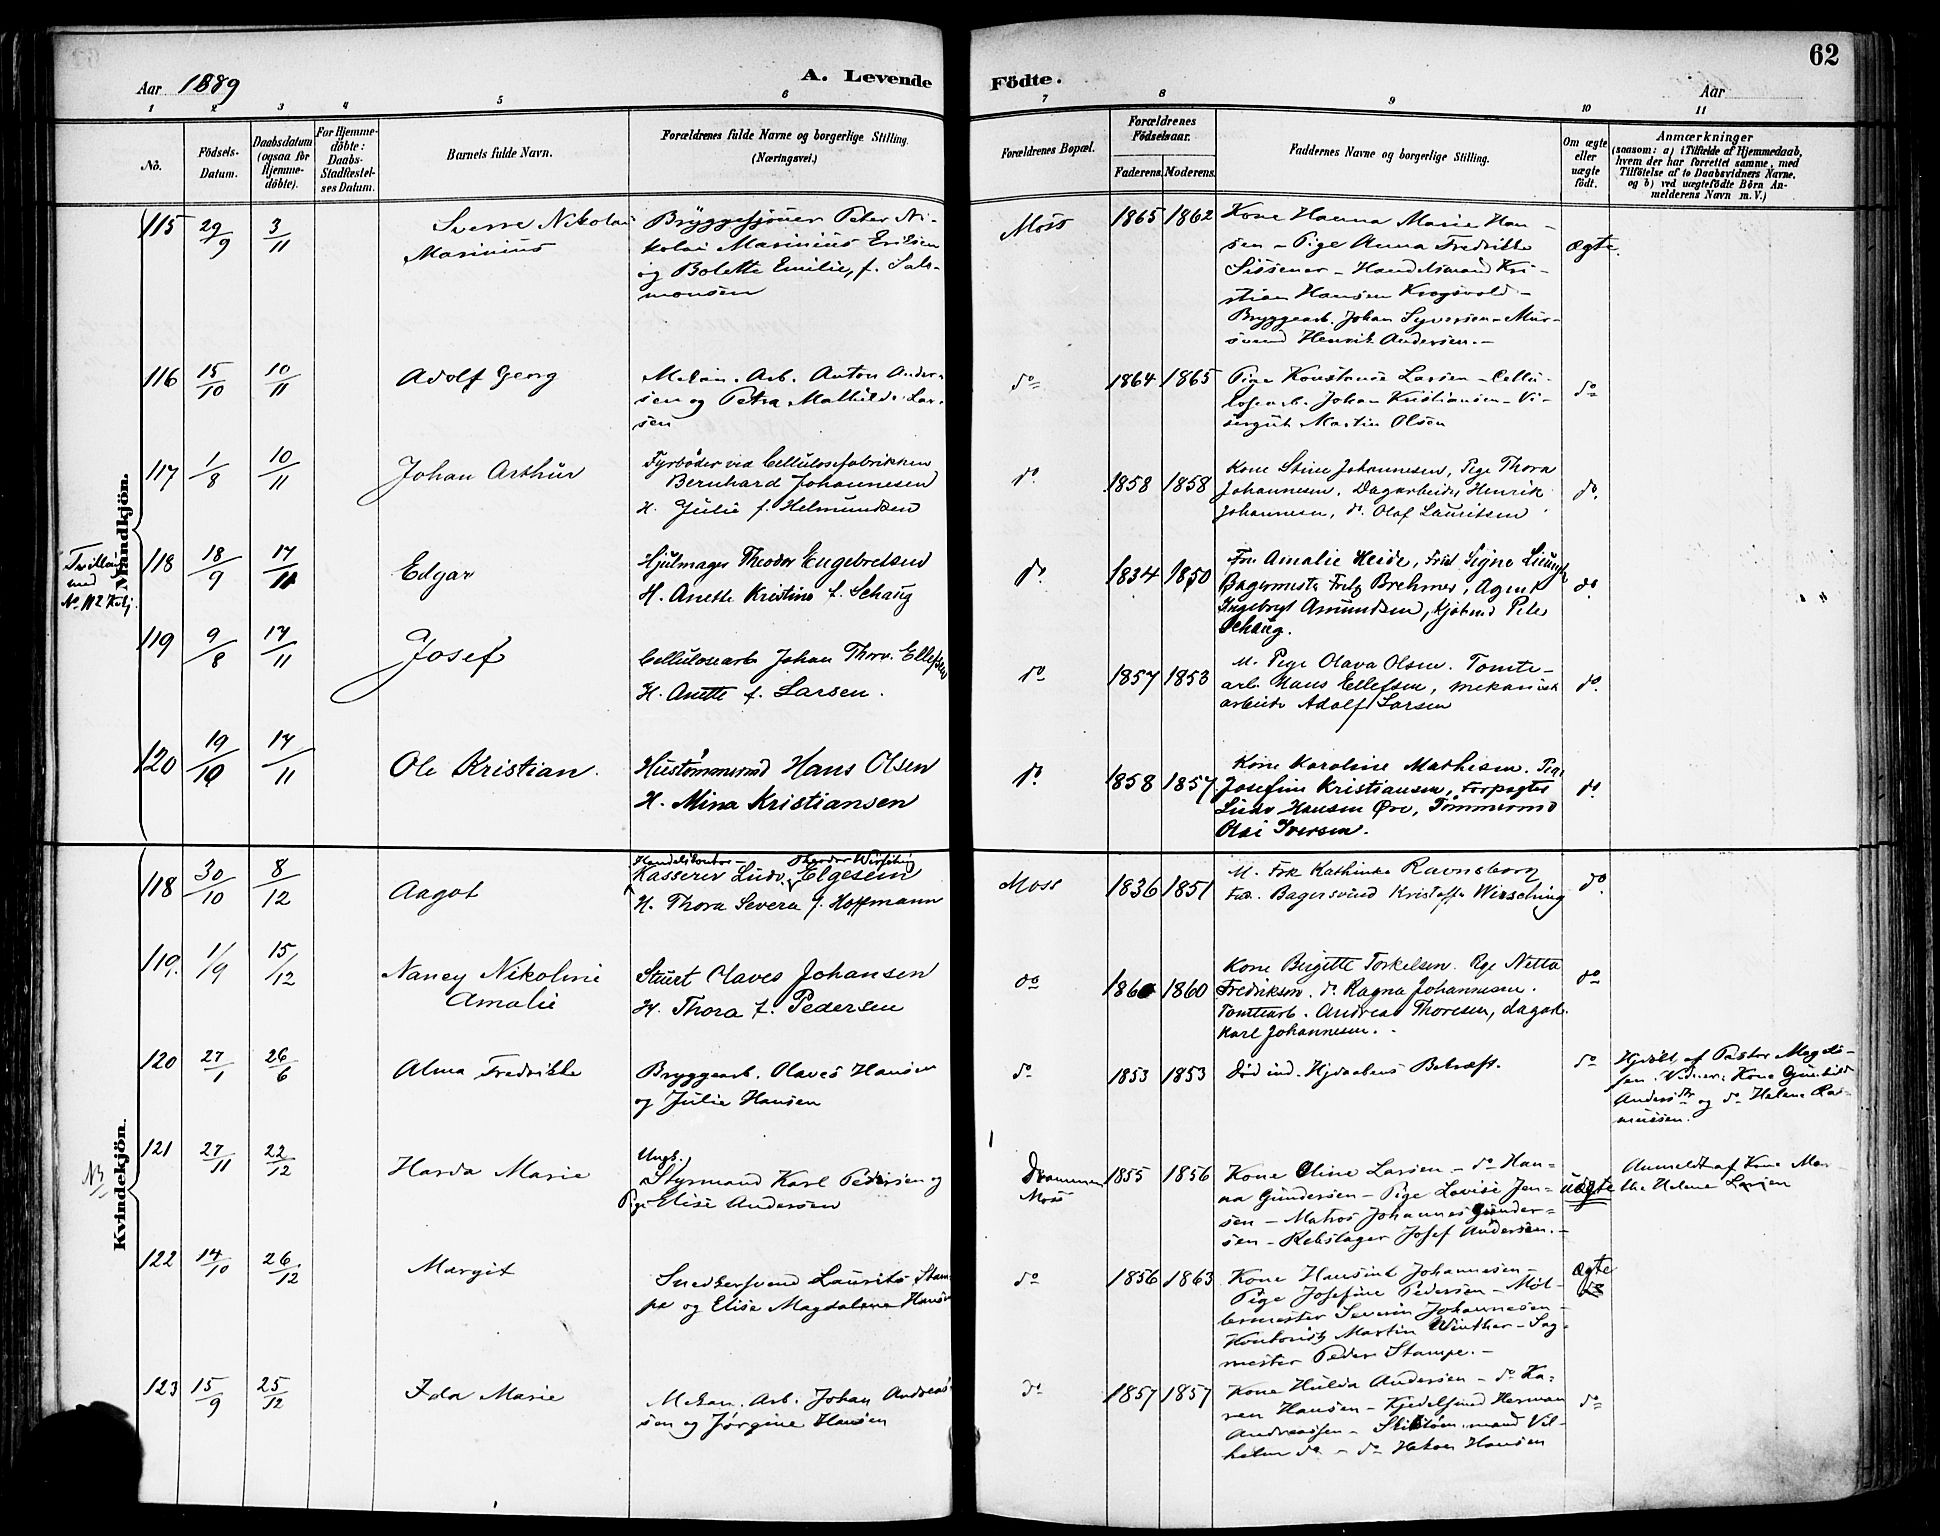 Aar 1889
A. Levende
Födte.
62
Aar
1 2 3 4 5 6 7 8 9 10 11
No.
Födsels-
Datum.
Daabsdatum
(ogsaa for
Hjemme-
döbte).
For Hjemme-
döbte:
Daabs-
Stadfæstel-
ses Datum.
Barnets fulde Navn.
Forældrenes fulde Navne og borgerlige Stilling.
(Næringsvei.)
Forældrenes Bopæl.
Forældrenes
Födselsaar.
Faderens.
Moderens.
Faddernes Navne og borgerlige Stilling.
Om ægte
eller
uægte
födt.
Anmærkninger
(saasom: a) i Tilfælde af Hjemmedaab,
hvem der har forrettet samme, med
Tilföielse af to Daabsvidners Navne,
og b) ved uægtefödte Börn An-
melderens Navn m. V.)
Mandkjön.
115 29/9 3/11 Sverre Nikolai
Marinius
Bryggesjouer Peter Ni-
kolai Marinius Eriksen
og Bolette Emilie, f. Salo-
monsen
Moss 1865 1862
Kone Hanna Marie Han-
sen - Pige Anna Fredrikke
Sissener - Handelsmand Kri-
stian Hansen Krogsvold -
Bryggearb. Johan Syversen - Mur-
svend Henrik Andersen. -
ægte.
116 15/10 10/11 Adolf Georg
Mekan. Arb. Anton Ander-
sen og Petra Mathilde Lar-
sen
do 1864 1865
Pige Konstanse Larsen - Cellu-
losearb. Johan Kristiansen - Vi-
sergut Martin Olsen
do
117 1/8 10/11 Johan Arthur
Fyrböder ved Cellulosefabrikken
Bernhard Johannesen
H. Julie f. Helmundsen
do 1858 1858
Kone Stine Johannesen, Pige Thora
Johannesen, Dagarbeider Henrik
Johannesen, do. Olaf Lauritsen
do.
Tvilling
med
No. 112 Kvkj.
118 18/9 17/11 Edgar
Hjulmager Theodor Engebretsen
H. Anette Kristine f. Schaug
do. 1834 1850
Fru Amalie Heide, Frøk Signe
Bagermester Fritz Brehmer, Agent
Ingebrigt Amundsen, Kjøbmd Peter
Schaug.
do.
119 9/8 17/11 Josef
Cellulosearb Johan Thorv. Ellefsen
H. Anette f. Larsen.
do 1857 1853
M. Pige Olava Olsen. Tomte-
arb. Hans Ellefsen, mekanisk
arbeider Adolf Larsen
do.
120 19/10 17/11 Ole Kristian.
Hustømmermd Hans Olsen
H. Mina Kristiansen
do. 1858 1857
Kone Karoline Mathisen. Pige
Josefine Kristiansen, Forpagter
Ludv Hansen Øre, Tømmermd
Olai Iversen.
do.
Kvindekjön.
118 30/10 8/12 Aagot
Handelskontor - Theodor Wirsching
Kasserer Ludv. Elgesem
H. Thora Severa f. Hoffmann
Moss 1836 1851
M. Frk Kathinka Ravnsborg
Fad. Bagersvend Kristoffer Wirsching
do.
119. 1/9 15/12 Nancy Nikoline
Amalie
Stuert Olaves Johansen
H. Thora f. Pedersen
do 1860 1860
Kone Birgitte Torkelsen. Pige Netta
Fredriksen. do. Ragna Johannesen.
Tomtearb. Andreas Thoresen, dagarb.
Karl Johannesen.
do
120 27/1 26/6 Alma Fredrikke
Bryggearb. Olaves Hansen
og Julie Hansen
do 1853 1853
Død ind. Hjdaabens Bekræft.
do
Hjdöbt af Pastor Magels-
sen. Vidner: Kone Gunhild
Andersdtr og do Helene Ras-
mussen.
NB
121 27/11 22/12 Harda Marie
Ungk.
Styrmand Karl Pedersen og
Pige Elise Andersen
Drammen
Moss
1855 1856
Kone Oline Larsen - do Han-
na Gundersen - Pige Lovise Jen-
sen - Matros Johannes Gunder-
sen - Rebslager Josef Andersen. -
uægte
Anmeldt af Kone Mar-
the Helene Larsen
122 14/10 26/12 Margit
Snedkersvend Laurits Stam-
pe og Elise Magdalene Hansen
do 1856 1863
Kone Hansine Johannesen -
Pige Josefine Pedersen - Møl-
lermester Severin Johannesen -
Kontorist Martin Winther - Sag-
mester Peder Stampe. -
ægte
123 15/9 25/12 Ida Marie
Mekan. Arb. Johan Andreas-
sen og Jørgine Hansen
do 1857 1857
Kone Hulda Andersen - do Ka-
ren Hansen - Kjedelsmed Herman
Andreassen - mand Vil-
helm do - do Hakon Hansen
do